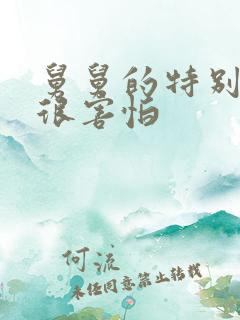 舅舅的特别
很害怕
何流
未经同意禁止转载